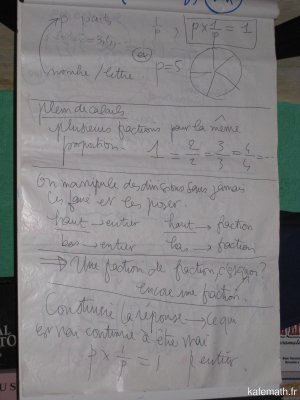 p parts 1/p , p × 1/p = 1
ou
nombre / lettre p = 5
plein de calculs
plusieurs fractions pour la même
proportion. 1 = 2/2 = 3/3 = 4/4 = ...
On manipule des divisions sans jamais
les faire et les poser.
haut → entier haut → fraction
bas → entier bas → fraction
⇒ Une fraction de fraction, c'est quoi?
encore une fraction.
Construire la réponse → ce qui
est vrai continue à être vrai
p × 1/p = 1 p entier.
kafemath.fr